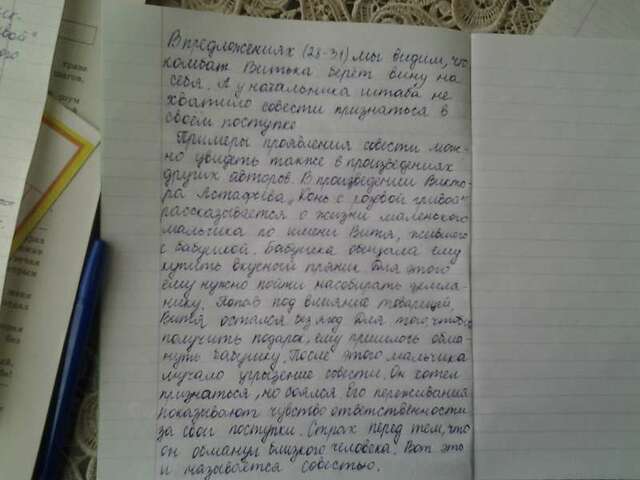 В предложениях (28-31) мы видим, что
комбат Витька берёт вину на
себя. А у начальника штаба не
хватило совести признаться в
своём поступке
Примеры проявления совести мож-
но увидеть также в произведениях
других авторов. В произведении Викто-
ра Астафьева „Конь с розовой гривой"
рассказывается о жизни маленького
мальчика по имени Витя, жившего
с бабушкой. Бабушка обещала ему
купить вкусный пряник. Для этого
ему нужно пойти насобирать земля-
нику. Попав под влияние товарищей,
Витя остался без ягод. Для того чтобы
получить подарок, ему пришлось обма-
нуть бабушку. После этого мальчика
мучало угрызение совести. Он хотел
признаться, но боялся. Его переживания
показывают чувство ответственности
за свои поступки. Страх перед тем, что
он обманул близкого человека. Вот это
и называется совестью.